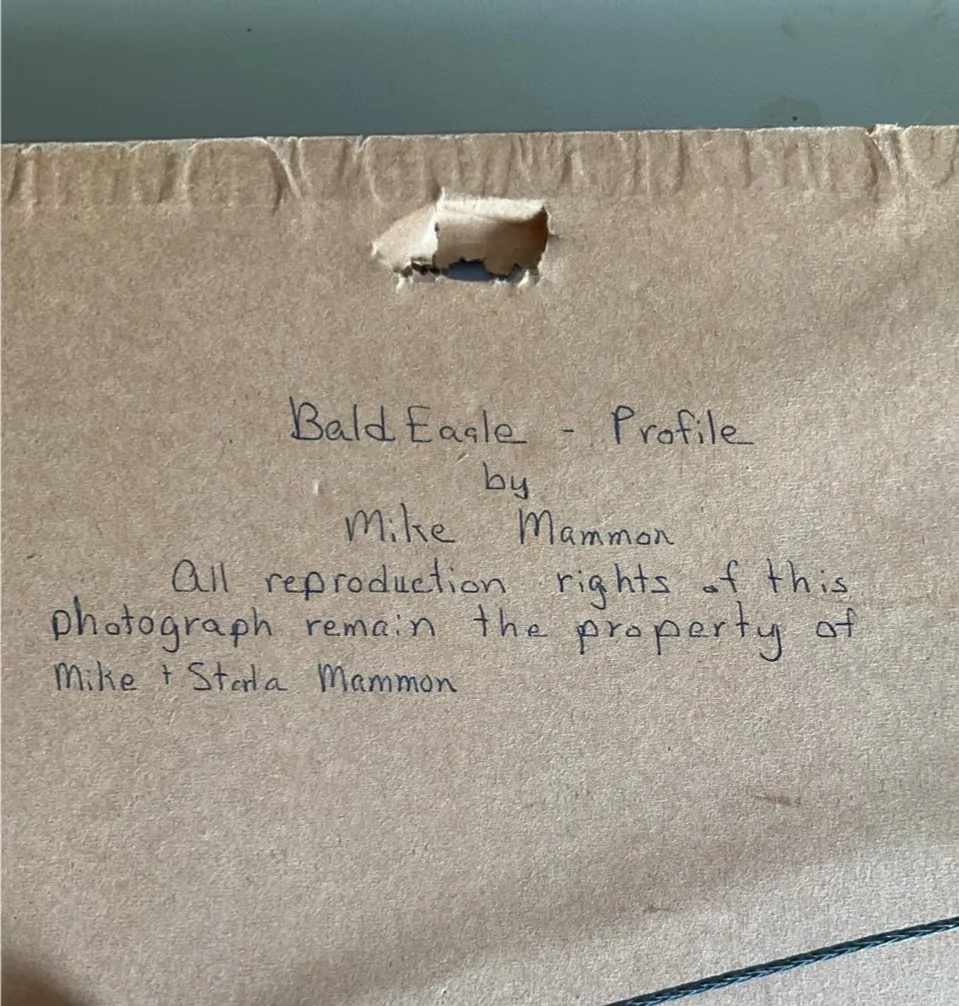 Bald Eagle - Profile
by
Mike Mammon
All reproduction rights of this
photograph remain the property of
Mike + Mammon